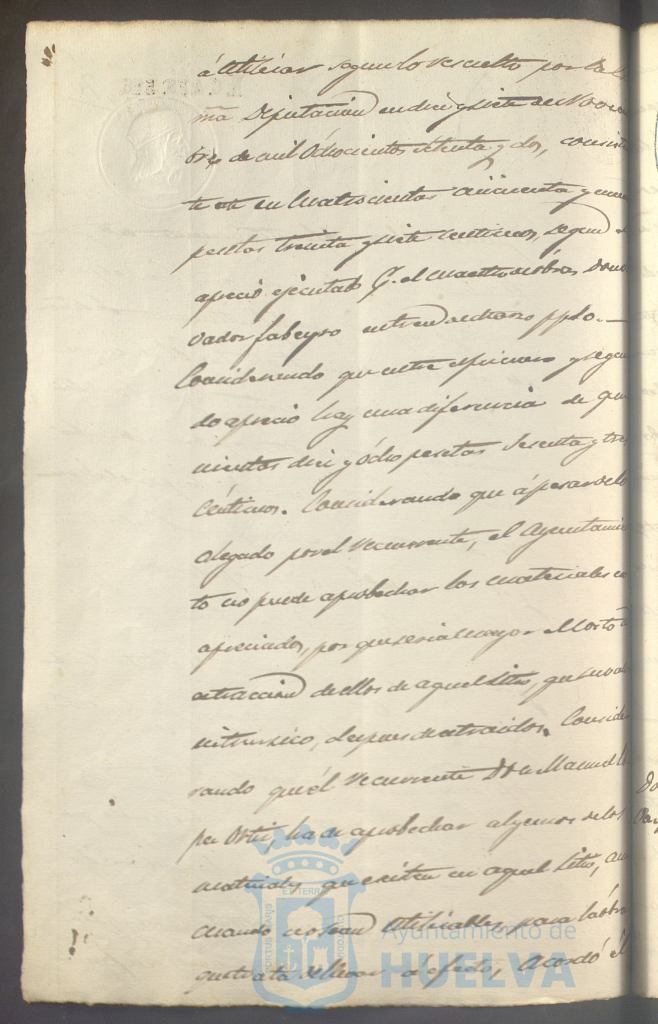 á utilizar segun lo resuelto por la Es
ma Diputacion en diez y siete de Novem
bre, de mil ochocientos setenta y dos, consis
te en cuatrocientas cincuenta y una
pesetas treinta y siete centimos, segun
aprecio ejecutado p.r el maestro de obras Don
vador fabeyro en tres de Marzo ppdo.—
Considerando que entre el primero y segun
do aprecio hay una diferencia de qui
nientas diez y ocho pesetas sesenta y tres
céntimos. Considerando que á pesar de lo
alegado por el recurrente, el Ayuntamien
to no puede aprobechar los materiales
apreciados, por que seria mayor el costo
estraccion de ellos de aquel sitio, que su valor
intrinsico, despues de estraidos. Conside
rando que el recurrente Don Manuel Lo
pez Ortiz, ha de aprobechar algunos de los
materiales que existen en aquel sitio, aun
cuando no sean utilizables para la obra
que trata de llevar á efecto, acordó el
Ayuntamiento de
HUELVA
PORTUS MARIS
ET TERRAE
CUSTODIA